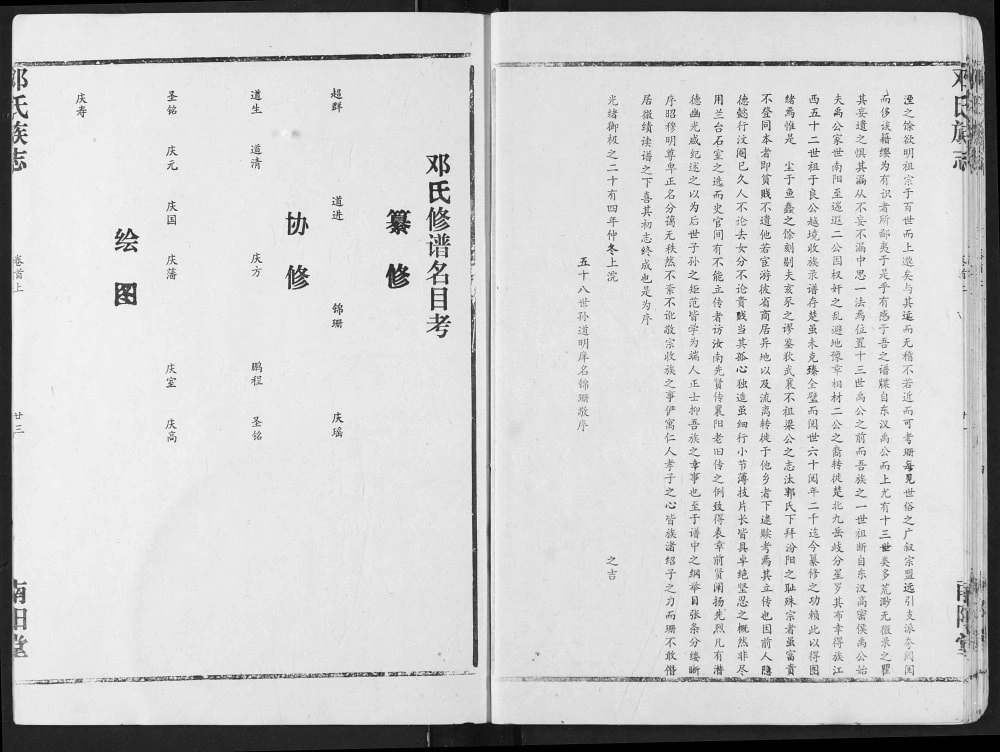 邓氏族志
南阳堂
湮之馀欲明祖宗于百世而上邈矣与其远而无稽不若近而可考珊每见世俗之广叙宗盟远引支派夸阀阅
而侈谈籍缨为有识者所鄙夷于是乎有感于吾之谱牒自东汉禹公而上尤有十三世类多荒渺无徵录之惧
其妄遗之惧其漏从不妄不漏中思一法焉位置十三世禹公之前而吾族之一世祖断自东汉高密侯禹公始
夫禹公家世南阳至遥逛二公因权奸之乱避地豫章相材二公之裔转徙楚北九岳歧分星罗其布幸得族江
西五十二世祖于良公越境收族录谱存楚虽未克臻全璧而阅世六十阅年二千迄今纂修之功赖此以得图
绪焉惟是 尘于鱼蠹之馀刻剔夫亥豕之谬鉴狄武襄不祖梁公之志汰郭氏下拜汾阳之耻殊宗者虽富贵
不登同本者即贫贱不遗他若宦游彼省商居异地以及流离转徙于他乡者下逮赎考焉其立传也因前人隐
德懿行汶阁已久人不论去女分不论贵贱当其孤心独造虽细行小节薄技片长皆具卓绝坚忍之概然非尽
用兰台石室之选而史官间有不能立传者访汝南先贤传襄阳老旧传之例致得表章前贤阐扬先烈凡有潜
德幽光咸纪述之以为后世子孙之矩范皆学为端人正士抑吾族之幸事也至于谱中之纲举目张条分缕晰
序昭穆明尊卑正名分蔼无秩然不紊不讹敬宗收族之事俨寓仁人孝子之心皆族诸绍子之力而珊不敢僭
居微绩读谱之下喜其初志终成也是为序
光绪御极之二十有四年仲冬上浣 之吉
五十八世孙道明庠名锦珊敬序
邓氏修谱名目考
纂修
超群 道进 锦珊 庆瑶
协修
道生 道清 庆方 鹏程 圣铭
绘图
圣铭 庆元 庆国 庆藩 庆室 庆高
庆寿
邓氏族志
卷首上
廿三
南阳堂